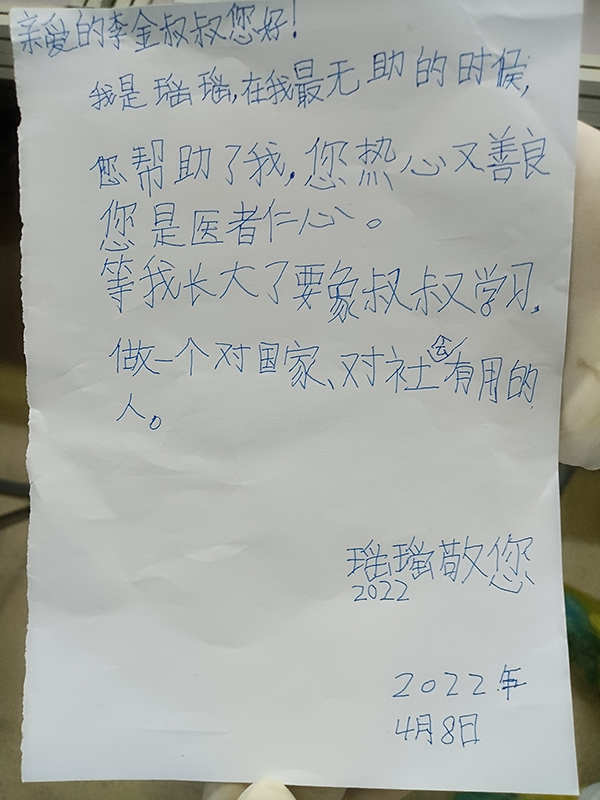 亲爱的李金叔叔您好！
我是瑶瑶，在我最无助的时候，
您帮助了我，您热心又善良
您是医者仁心。
等我长大了要象叔叔学习，
做一个对国家、对社会有用的
人。
瑶瑶敬您
2022
2022年
4月8日